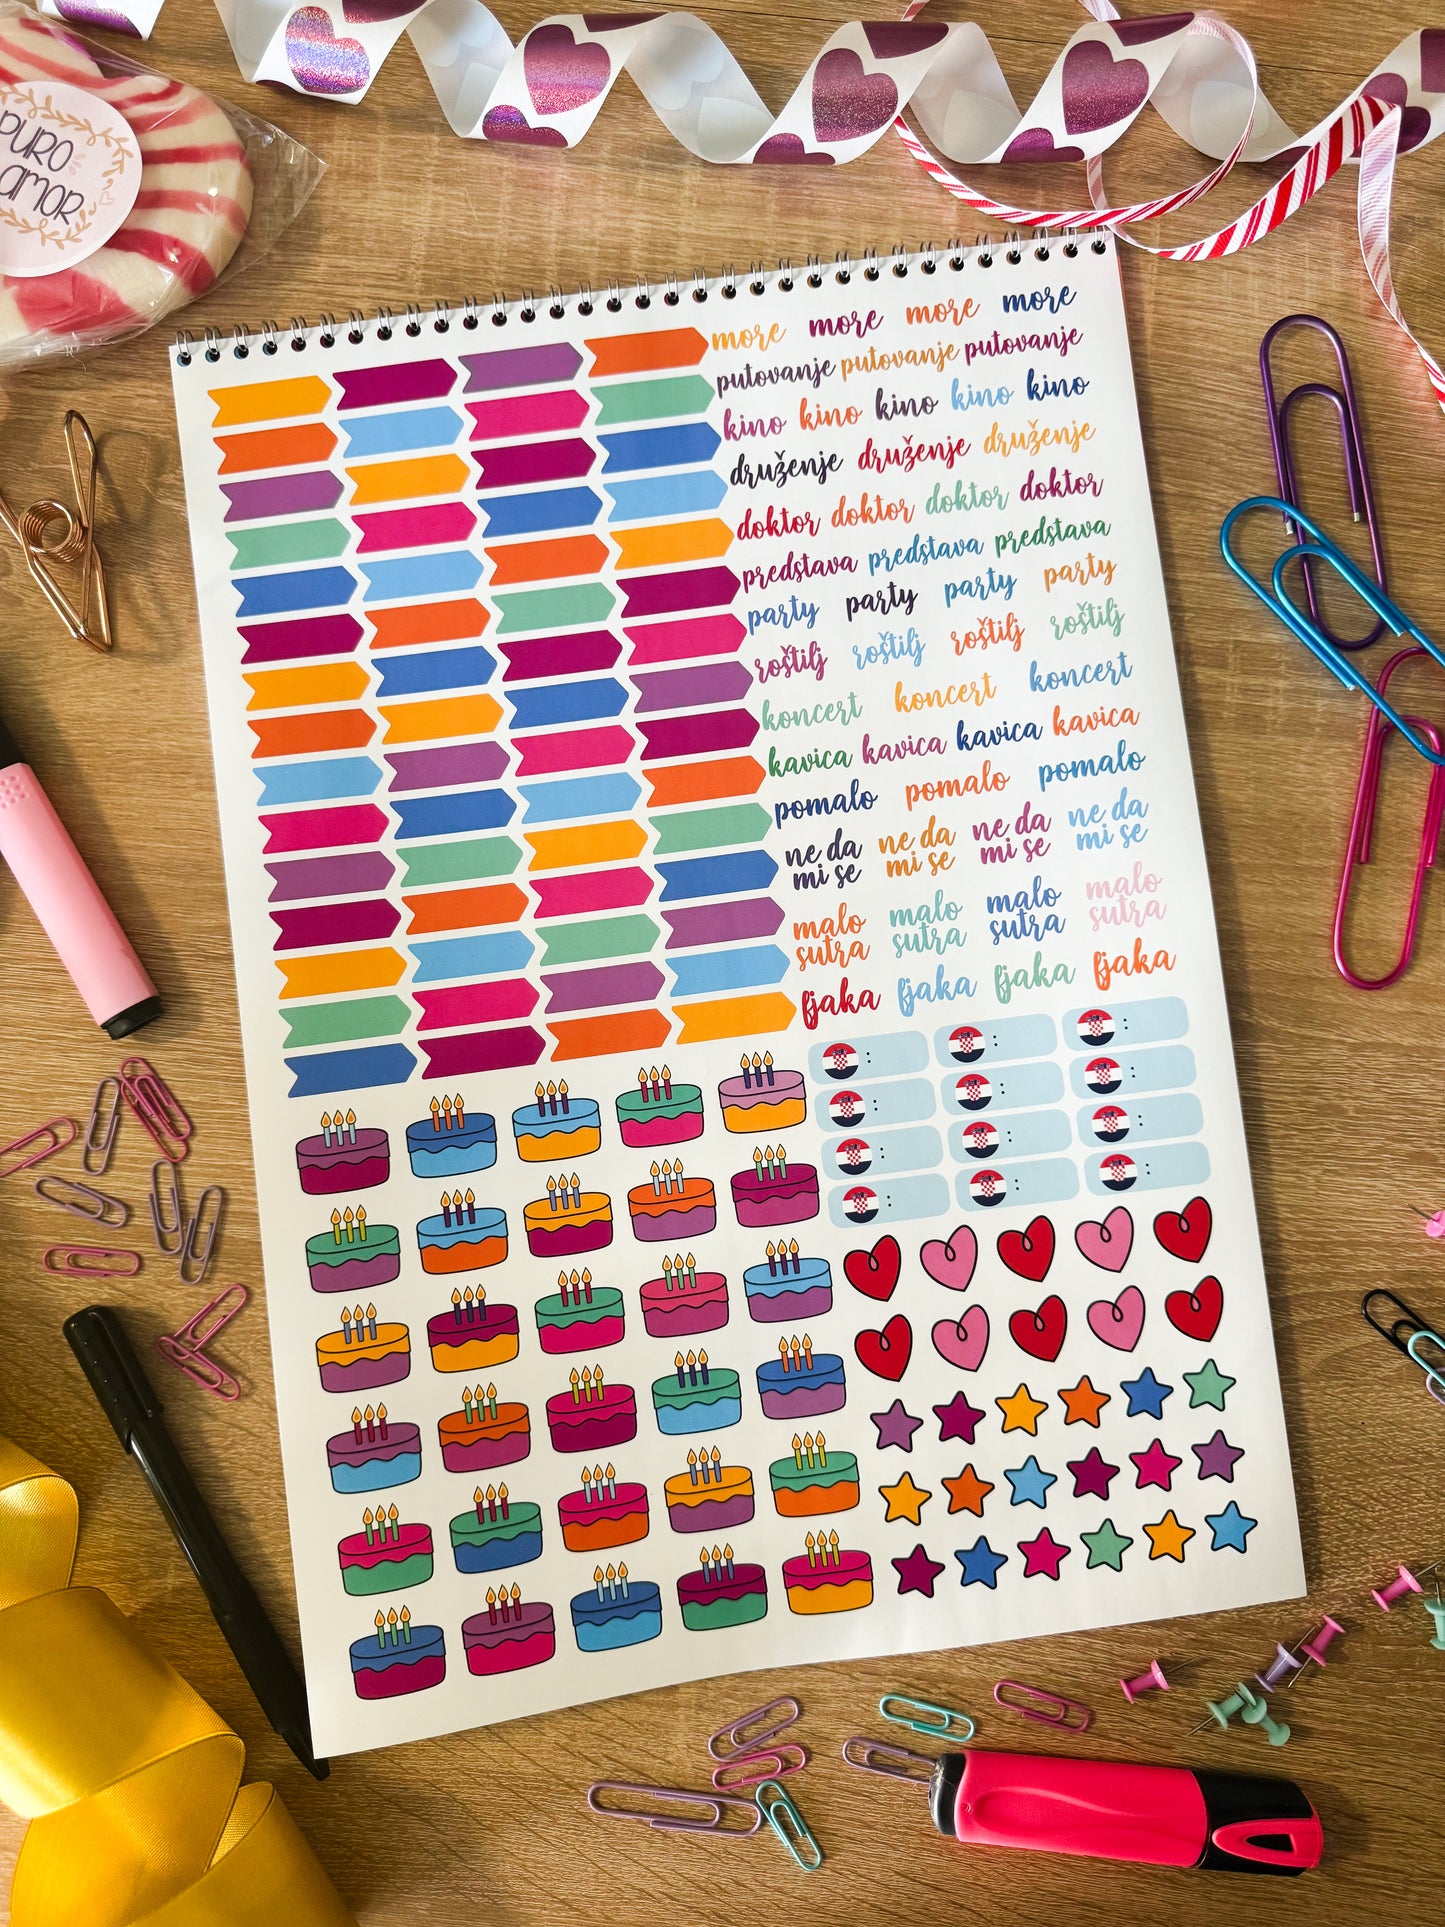 PURO
AMOR
more more more more
putovanje putovanje putovanje
kino kino kino kino kino
druženje druženje druženje
doktor doktor doktor doktor
predstava predstava predstava
party party party party
roštilj roštilj roštilj roštilj
koncert koncert koncert
kavica kavica kavica kavica
pomalo pomalo pomalo
ne da ne da ne da ne da
mi se mi se mi se mi se
malo malo malo malo
sutra sutra sutra sutra
fjaka fjaka fjaka fjaka
: : :
: : :
: : :
: : :